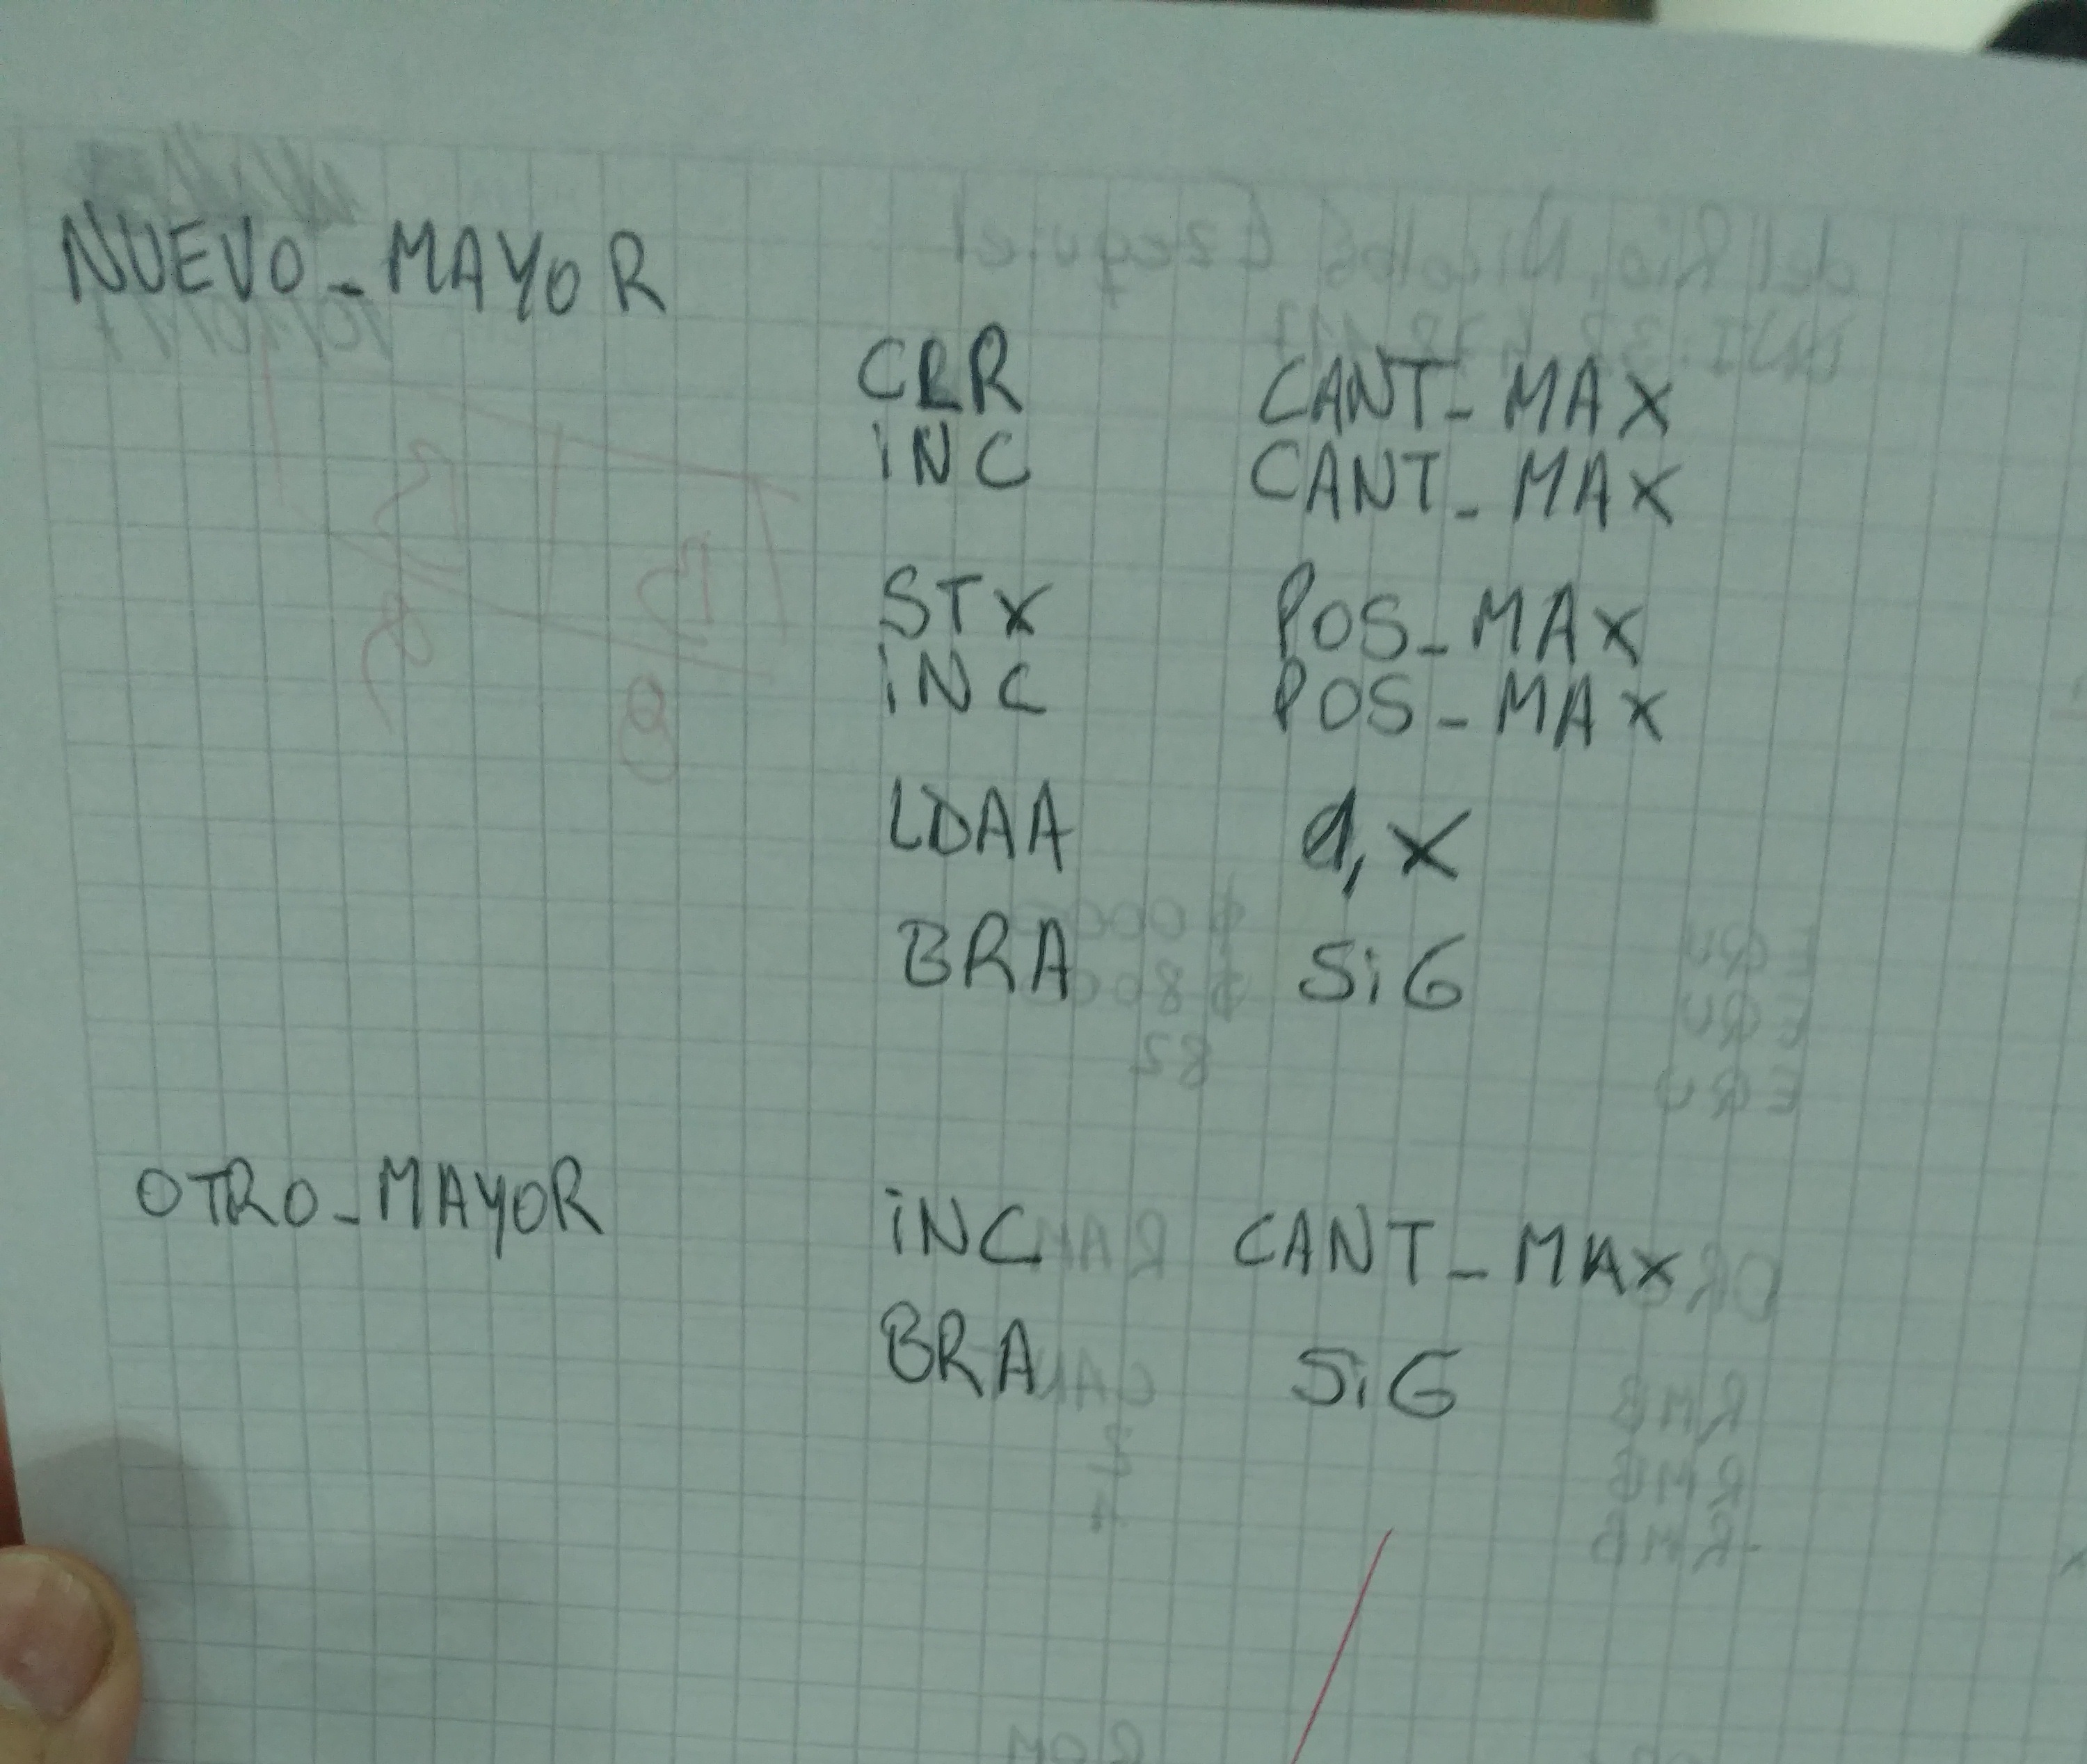 NUEVO_MAYOR
CLR CANT_MAX
INC CANT_MAX
STX POS_MAX
INC POS_MAX
LDAA 1,X
BRA SIG
OTRO_MAYOR INC CANT_MAX
BRA SIG